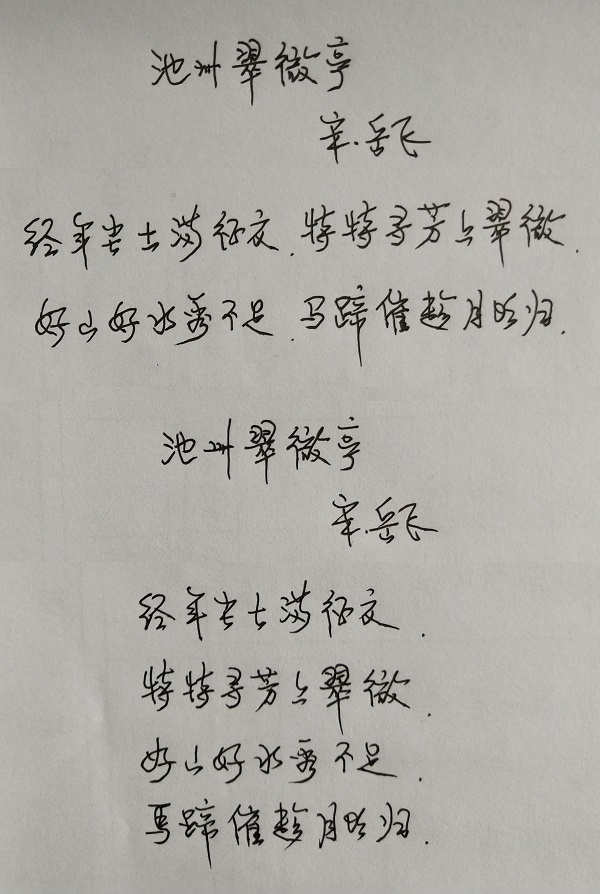 池州翠微亭
宋.岳飞
经年尘土满征衣.特特寻芳上翠微.
好山好水看不足.马蹄催趁月明归.
池州翠微亭
宋.岳飞
经年尘土满征衣.
特特寻芳上翠微.
好山好水看不足.
马蹄催趁月明归.